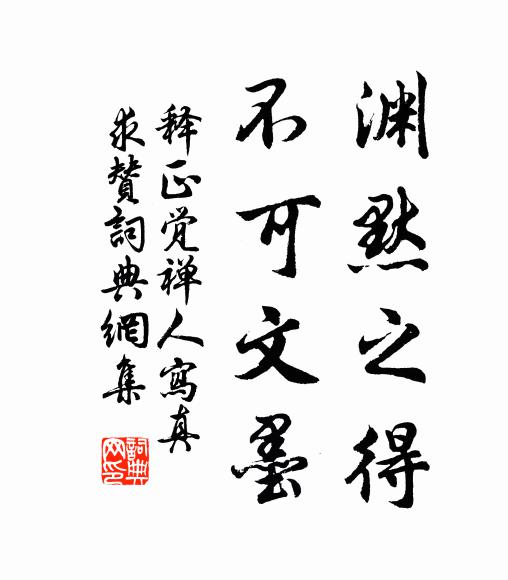 渊默之得
不可文墨
释正觉禅人寫真
求赞詞典網集
詞典网印